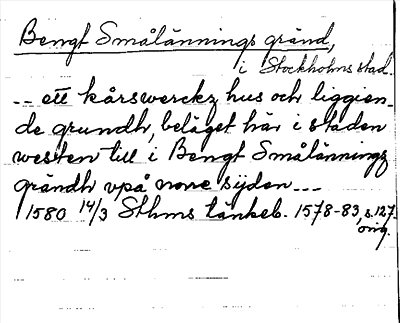 Bengt Smålännings gränd,
i Stockholms stad.
-- ett kårswerckz hus och liggien-
de grundh, beläget här i staden
westen till i Bengt Smålännings
grändh vpå norre sijden ---
1580 14/3 Sthms tänkeb. 1578-83, s. 127.
orig.